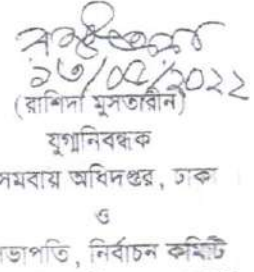 ১৩/০৫/২০২২
(রাশিদা মুসতারীন)
যুগ্মনিবন্ধক
সমবায় অধিদপ্তর, ঢাকা
ও
সভাপতি, নির্বাচন কমিটি